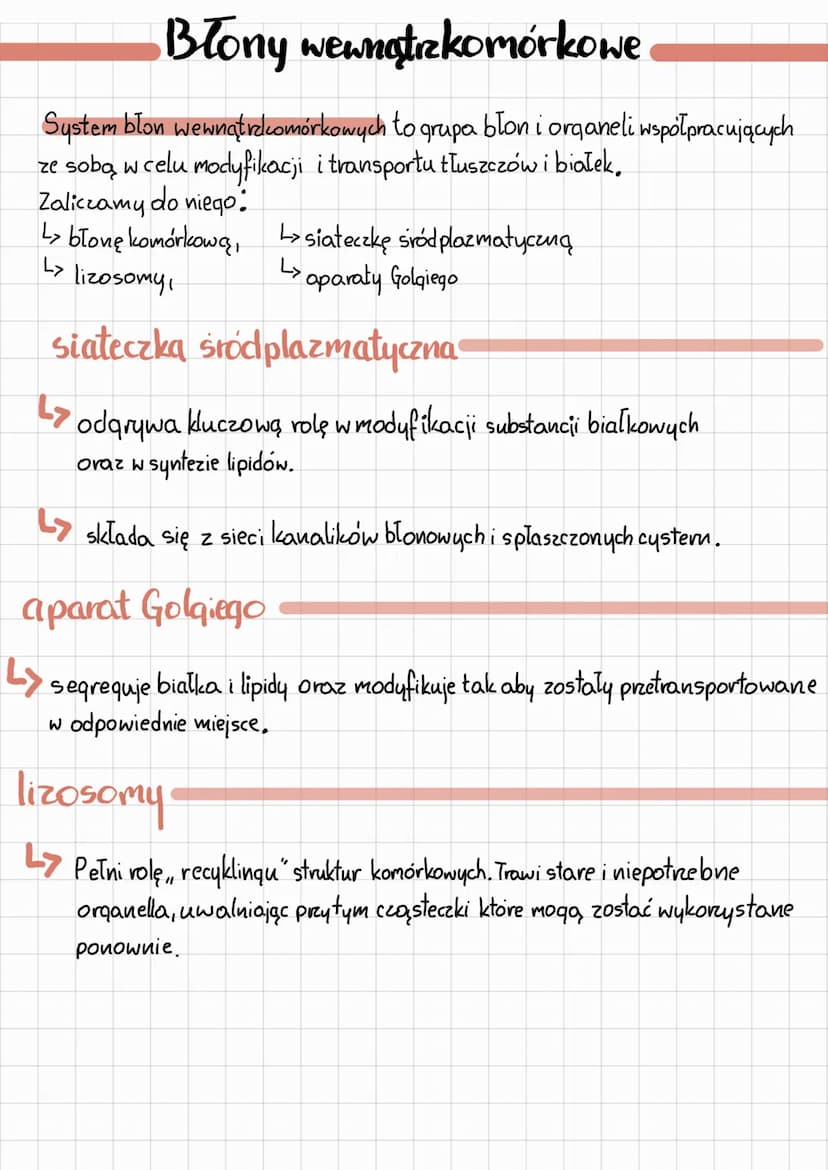 Błony wewnątrzkomórkowe
System błon wewnątrzkomórkowych to grupa błon i organeli współpracujących
ze sobą w celu modyfikacji i transportu tłuszczów i białek.
Zaliczamy do niego:
↳ błonę komórkową, ↳ siateczkę śródplazmatyczną
↳ lizosomy, ↳ aparaty Golgiego
siateczka śródplazmatyczna
↳ odgrywa kluczową rolę w modyfikacji substancji białkowych
oraz w syntezie lipidów.
↳ składa się z sieci kanalików błonowych i spłaszczonych cystern.
aparat Golgiego
↳ segreguje białka i lipidy oraz modyfikuje tak aby zostały przetransportowane
w odpowiednie miejsce.
lizosomy
↳ Pełni rolę „recyklingu" struktur komórkowych. Trawi stare i niepotrzebne
organella, uwalniając przytym cząsteczki które mogą zostać wykorzystane
ponownie.